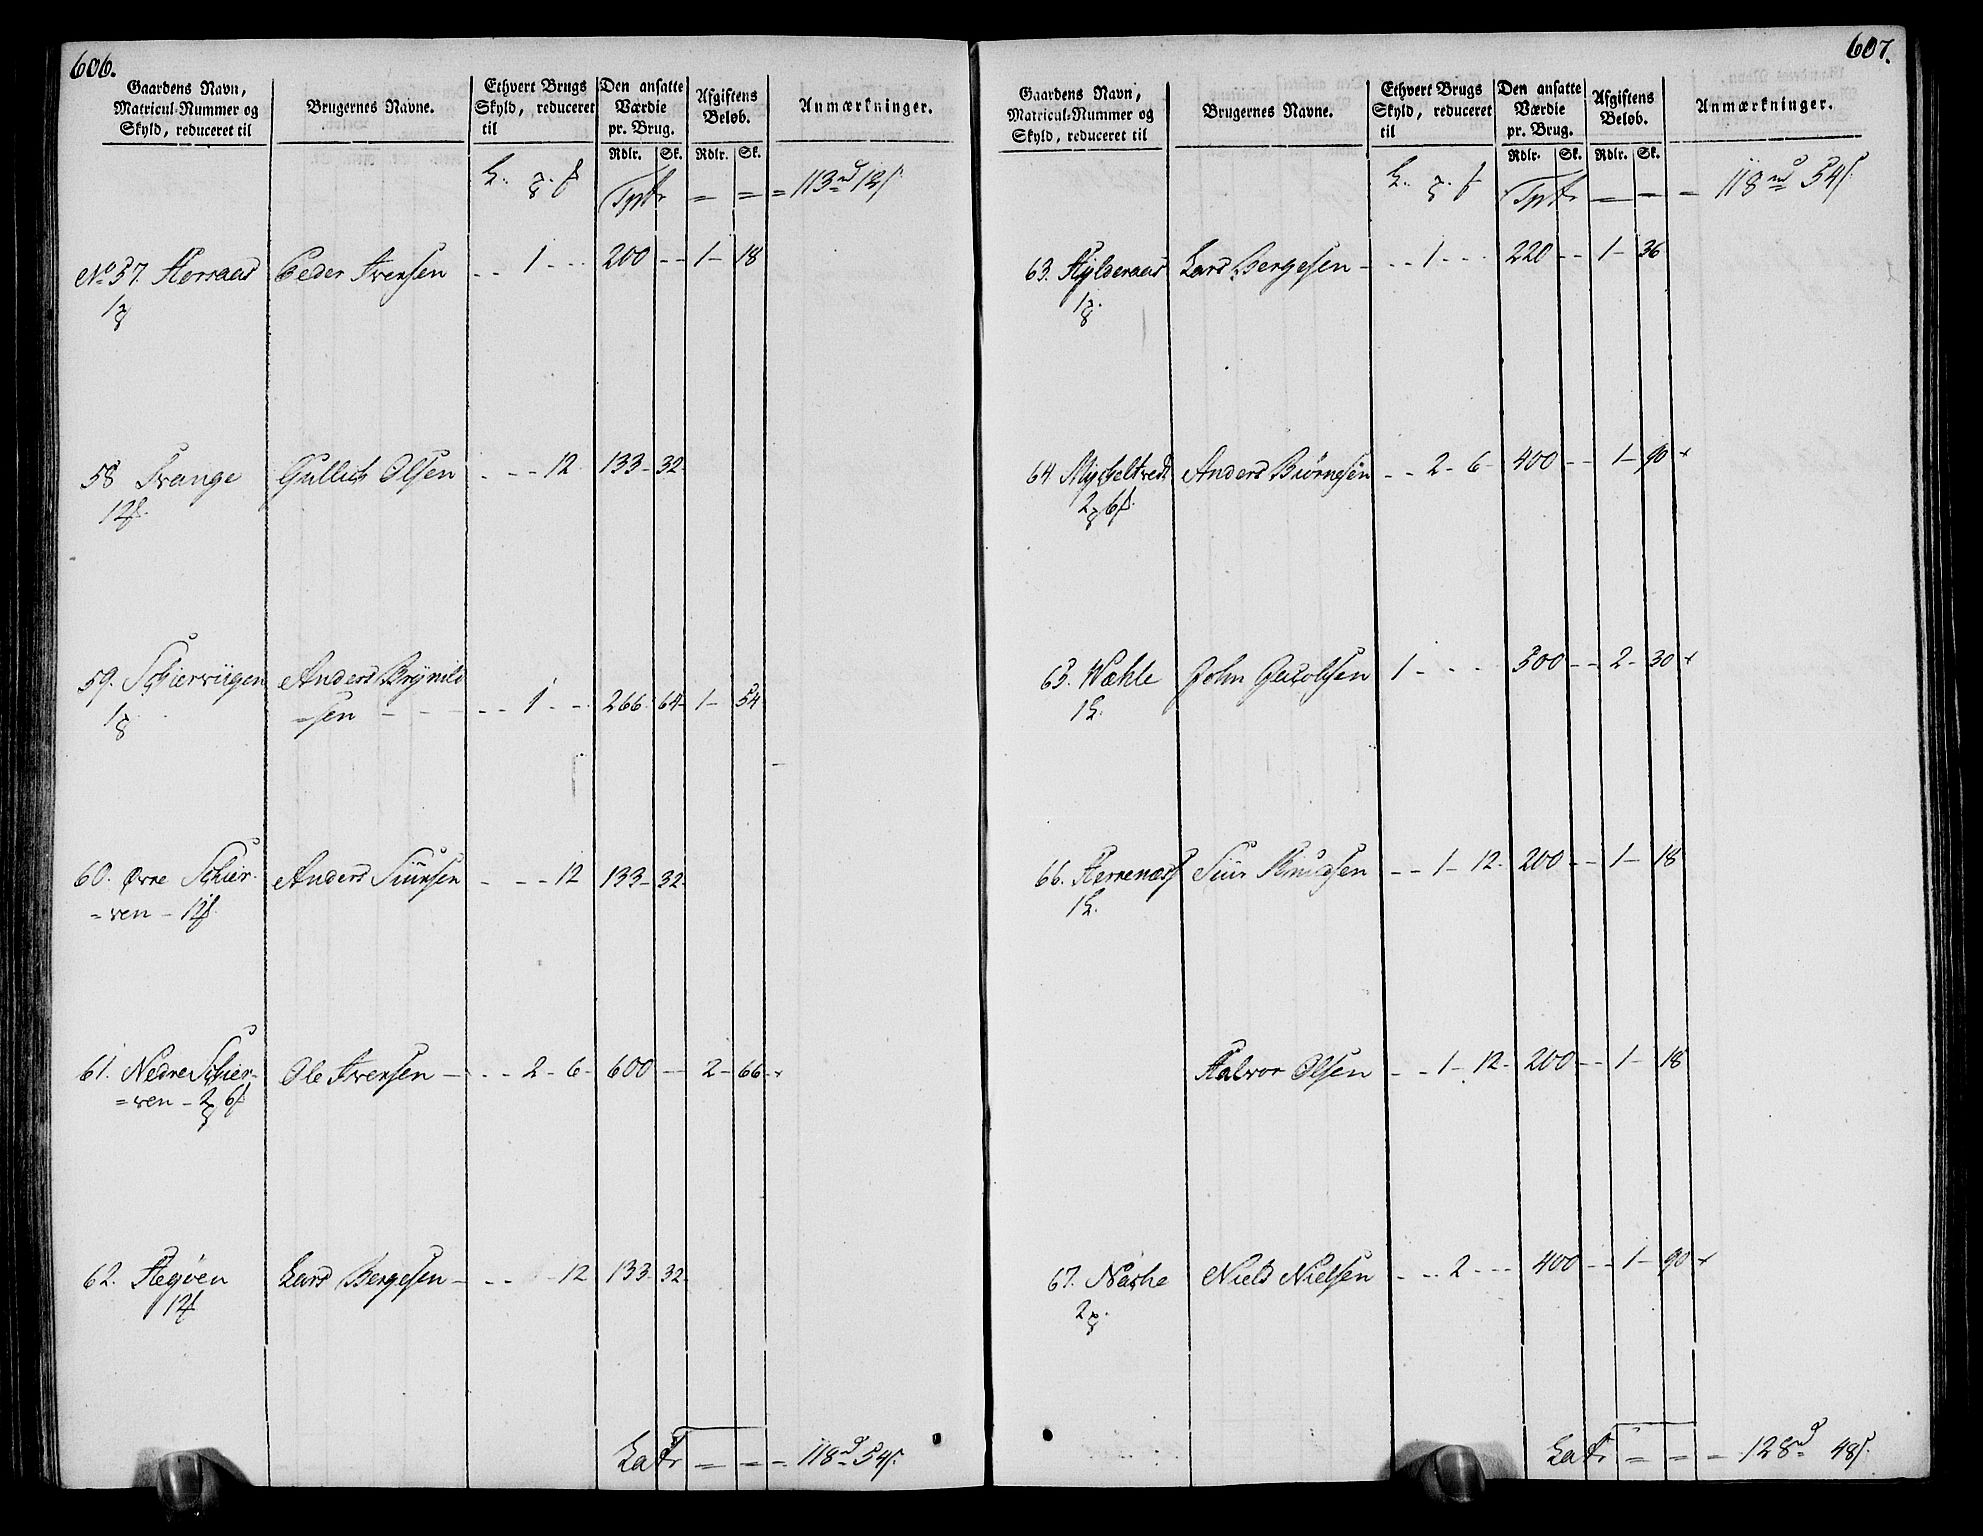 606.
Gaardens Navn, Matricul-Nummer og Skyld, reduceret til
Brugernes Navne.
Ethvert Brugs Skyld, reduceret til
Den ansatte Værdie pr. Brug.
Afgiftens Beløb.
Anmærkninger.
Rdlr. Sk. Rdlr. Sk.
113 rd 12 s.
No 57. Herraas Peder Iversen - - 1 - - - 200 - - 1 - 18
58 Trange Gullich Olsen - - - 12 133 - 32
12 s.
59. Schierviigen Anders Brynild
=sen - - - - - 1 - - 266 64 - 1 - 54
60. Øvre Schier- Anders Siursen - - - 12 133 - 32
=ven - 12 s.
61. Nedre Schier- Ole Iversen - - - 2 - 6 - 600 - - 2 - 66
=ven - 2 6 s
62. Hegøen Lars Bergesen - - - 12 133 - 32
12 s
Latr = = = 118 rd 54 s.
607.
Gaardens Navn, Matricul-Nummer og Skyld, reduceret til
Brugernes Navne.
Ethvert Brugs Skyld, reduceret til
Den ansatte Værdie pr. Brug.
Afgiftens Beløb.
Anmærkninger.
Rdlr. Sk. Rdlr. Sk.
118 rd 54 s.
63. Hylderaas Lars Bergesen - - - 1 - - - 220 - - 1 - 36
64 Mycheltvedt Anders Biørnsen - - 2 - 6 - 400 - - 1 - 90
2 6 s.
65. Wæhle John 1 - - - 500 - - 2 - 30
66. Herrenæss Siur Knudsen - - 1 - 12 - 200 - - 1 - 18
Halvor Olsen - - 1 - 12 - 200 - - 1 - 18
67. Næshe Niels Nielsen - - - 2 - - - 400 - - 1 - 90
Latr = = = 128 rd 48 s.